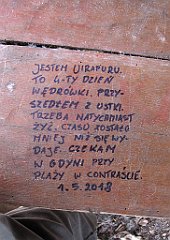 JESTEM UIRAPURU.
TO 4-TY DZIEŃ
WĘDRÓWKI. PRZY-
SZEDŁEM Z USTKI.
TRZEBA NATYCHMIAST
ŻYĆ. CZASU ZOSTAŁO
MNIEJ NIŻ SIĘ WY-
DAJE. CZEKAM
W GDYNI PRZY
PLAŻY W CONTRAŚCIE.
1.5.2018